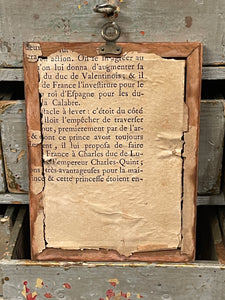 on action. On le
on lui donna d'augmenter sa
du duc de Valentinois; & il
de France l'investiture pour le
roi d'Espagne pour les du-
la Calabre.
stacle à lever : c'étoit du côté
loit l'empêcher de traverser
tout, premièrement par de l'ar-
& dont ce prince avoit toujours
ment, il lui proposa de faire
France à Charles duc de Lu-
d'empereur Charles-Quint;
très-avantageuses pour la mai-
& cette princesse étoient en-